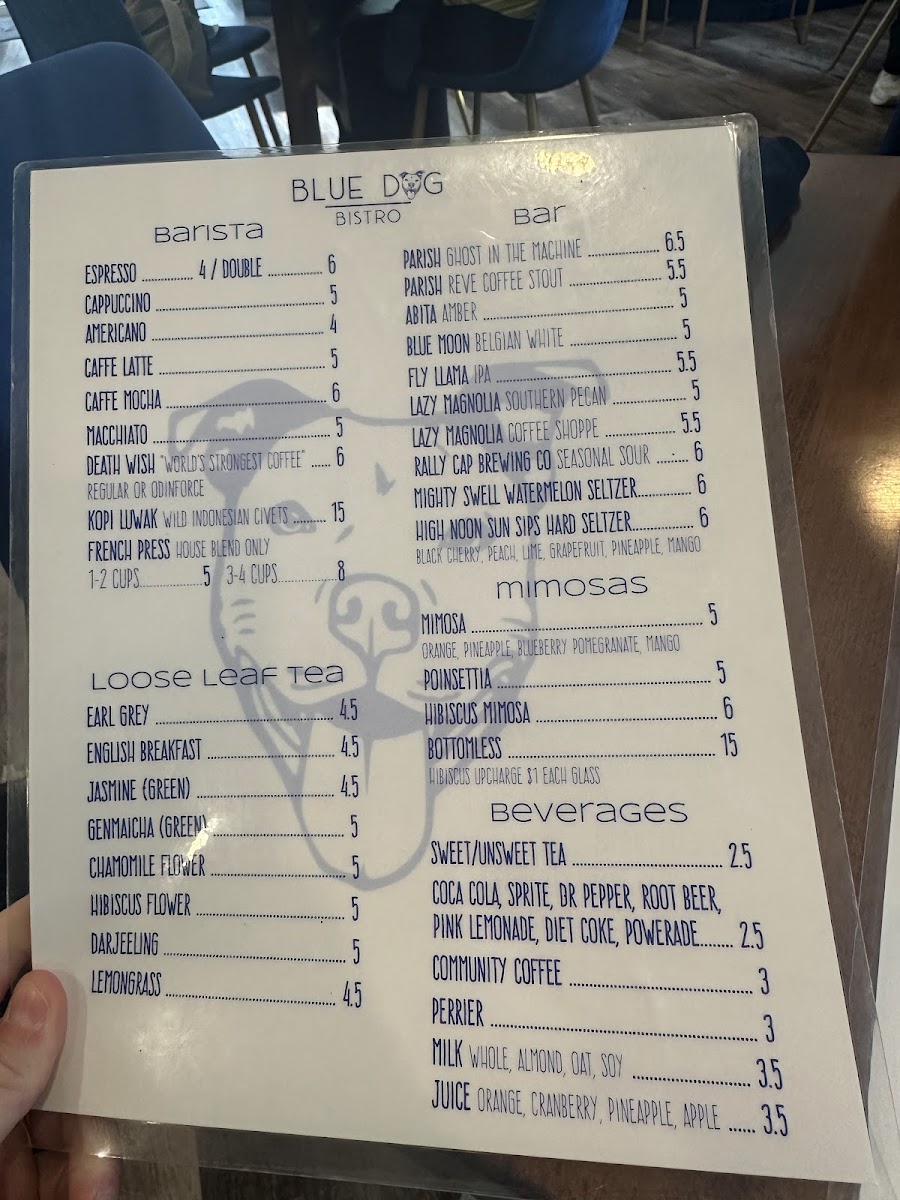 BLUE DOG
BISTRO
Barista
ESPRESSO .......... 4 / DOUBLE .......... 6
CAPPUCCINO .......... 5
AMERICANO .......... 4
CAFFE LATTE .......... 5
CAFFE MOCHA .......... 6
MACCHIATO .......... 5
DEATH WISH "WORLD'S STRONGEST COFFEE" ..... 6
REGULAR OR ODINFORCE
KOPI LUWAK WILD INDONESIAN CIVETS ........ 15
FRENCH PRESS HOUSE BLEND ONLY
1-2 CUPS..........5 3-4 CUPS..........8
Loose Leaf Tea
EARL GREY .......... 4.5
ENGLISH BREAKFAST .......... 4.5
JASMINE (GREEN) .......... 4.5
GENMAICHA (GREEN) .......... 5
CHAMOMILE FLOWER .......... 5
HIBISCUS FLOWER .......... 5
DARJEELING .......... 5
LEMONGRASS .......... 4.5
Bar
PARISH GHOST IN THE MACHINE .......... 6.5
PARISH REVE COFFEE STOUT .......... 5.5
ABITA AMBER .......... 5
BLUE MOON BELGIAN WHITE .......... 5
FLY LLAMA IPA .......... 5.5
LAZY MAGNOLIA SOUTHERN PECAN .......... 5
LAZY MAGNOLIA COFFEE SHOPPE .......... 5.5
RALLY CAP BREWING CO SEASONAL SOUR ........ 6
MIGHTY SWELL WATERMELON SELTZER.......... 6
HIGH NOON SUN SIPS HARD SELTZER.......... 6
BLACK CHERRY, PEACH, LIME, GRAPEFRUIT, PINEAPPLE, MANGO
mimosas
MIMOSA .......... 5
ORANGE, PINEAPPLE, BLUEBERRY POMEGRANATE, MANGO
POINSETTIA .......... 5
HIBISCUS MIMOSA .......... 6
BOTTOMLESS .......... 15
HIBISCUS UPCHARGE $1 EACH GLASS
Beverages
SWEET/UNSWEET TEA .......... 2.5
COCA COLA, SPRITE, DR PEPPER, ROOT BEER,
PINK LEMONADE, DIET COKE, POWERADE........ 2.5
COMMUNITY COFFEE .......... 3
PERRIER .......... 3
MILK WHOLE, ALMOND, OAT, SOY .......... 3.5
JUICE ORANGE, CRANBERRY, PINEAPPLE, APPLE ...... 3.5